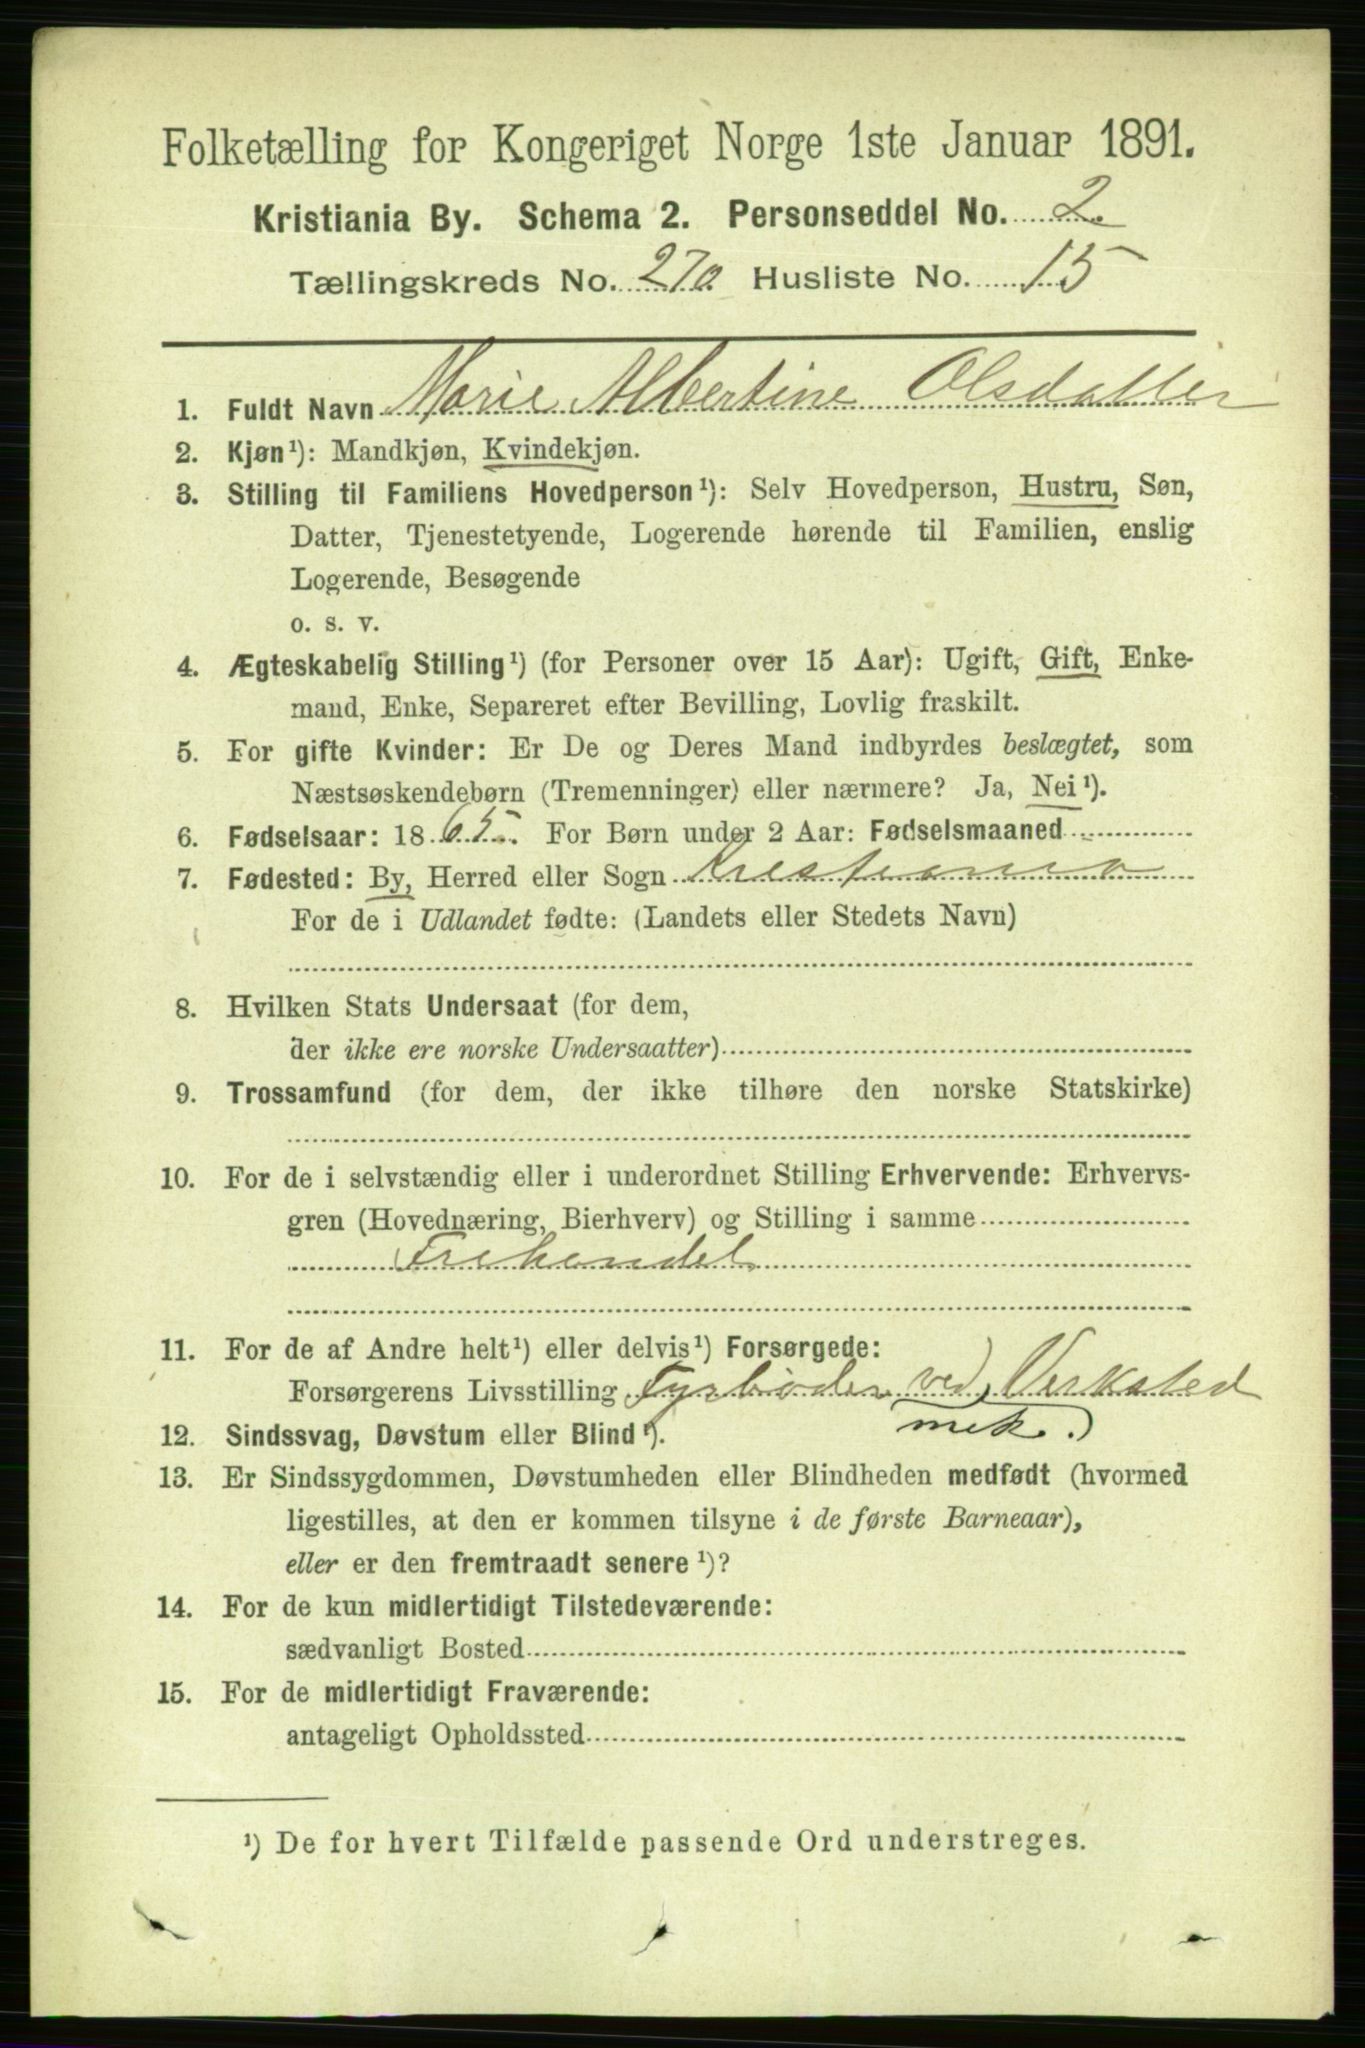 Folketælling for Kongeriget Norge 1ste Januar 1891.
Kristiania By. Schema 2. Personseddel No. 2.
Tællingskreds No. 270 Husliste No. 15
1. Fuldt Navn Marie Albertine Olsdatter
2. Kjøn¹): Mandkjøn, Kvindekjøn.
3. Stilling til Familiens Hovedperson¹): Selv Hovedperson, Hustru, Søn,
Datter, Tjenestetyende, Logerende hørende til Familien, enslig
Logerende, Besøgende
o. s. v.
4. Ægteskabelig Stilling¹) (for Personer over 15 Aar): Ugift, Gift, Enke-
mand, Enke, Separeret efter Bevilling, Lovlig fraskilt.
5. For gifte Kvinder: Er De og Deres Mand indbyrdes beslægtet, som
Næstsøskendebørn (Tremenninger) eller nærmere? Ja, Nei¹).
6. Fødselsaar: 1865. For Børn under 2 Aar: Fødselsmaaned
7. Fødested: By, Herred eller Sogn Kristiania
For de i Udlandet fødte: (Landets eller Stedets Navn)
8. Hvilken Stats Undersaat (for dem,
der ikke ere norske Undersaatter)
9. Trossamfund (for dem, der ikke tilhøre den norske Statskirke)
10. For de i selvstændig eller i underordnet Stilling Erhvervende: Erhvervs-
gren (Hovednæring, Bierhverv) og Stilling i samme
Frehandel
11. For de af Andre helt¹) eller delvis¹) Forsørgede:
Forsørgerens Livsstilling Fyrbøder ved Verksted
mek.)
12. Sindssvag, Døvstum eller Blind¹).
13. Er Sindssygdommen, Døvstumheden eller Blindheden medfødt (hvormed
ligestilles, at den er kommen tilsyne i de første Barneaar),
eller er den fremtraadt senere¹)?
14. For de kun midlertidigt Tilstedeværende:
sædvanligt Bosted
15. For de midlertidigt Fraværende:
antageligt Opholdssted
¹) De for hvert Tilfælde passende Ord understreges.